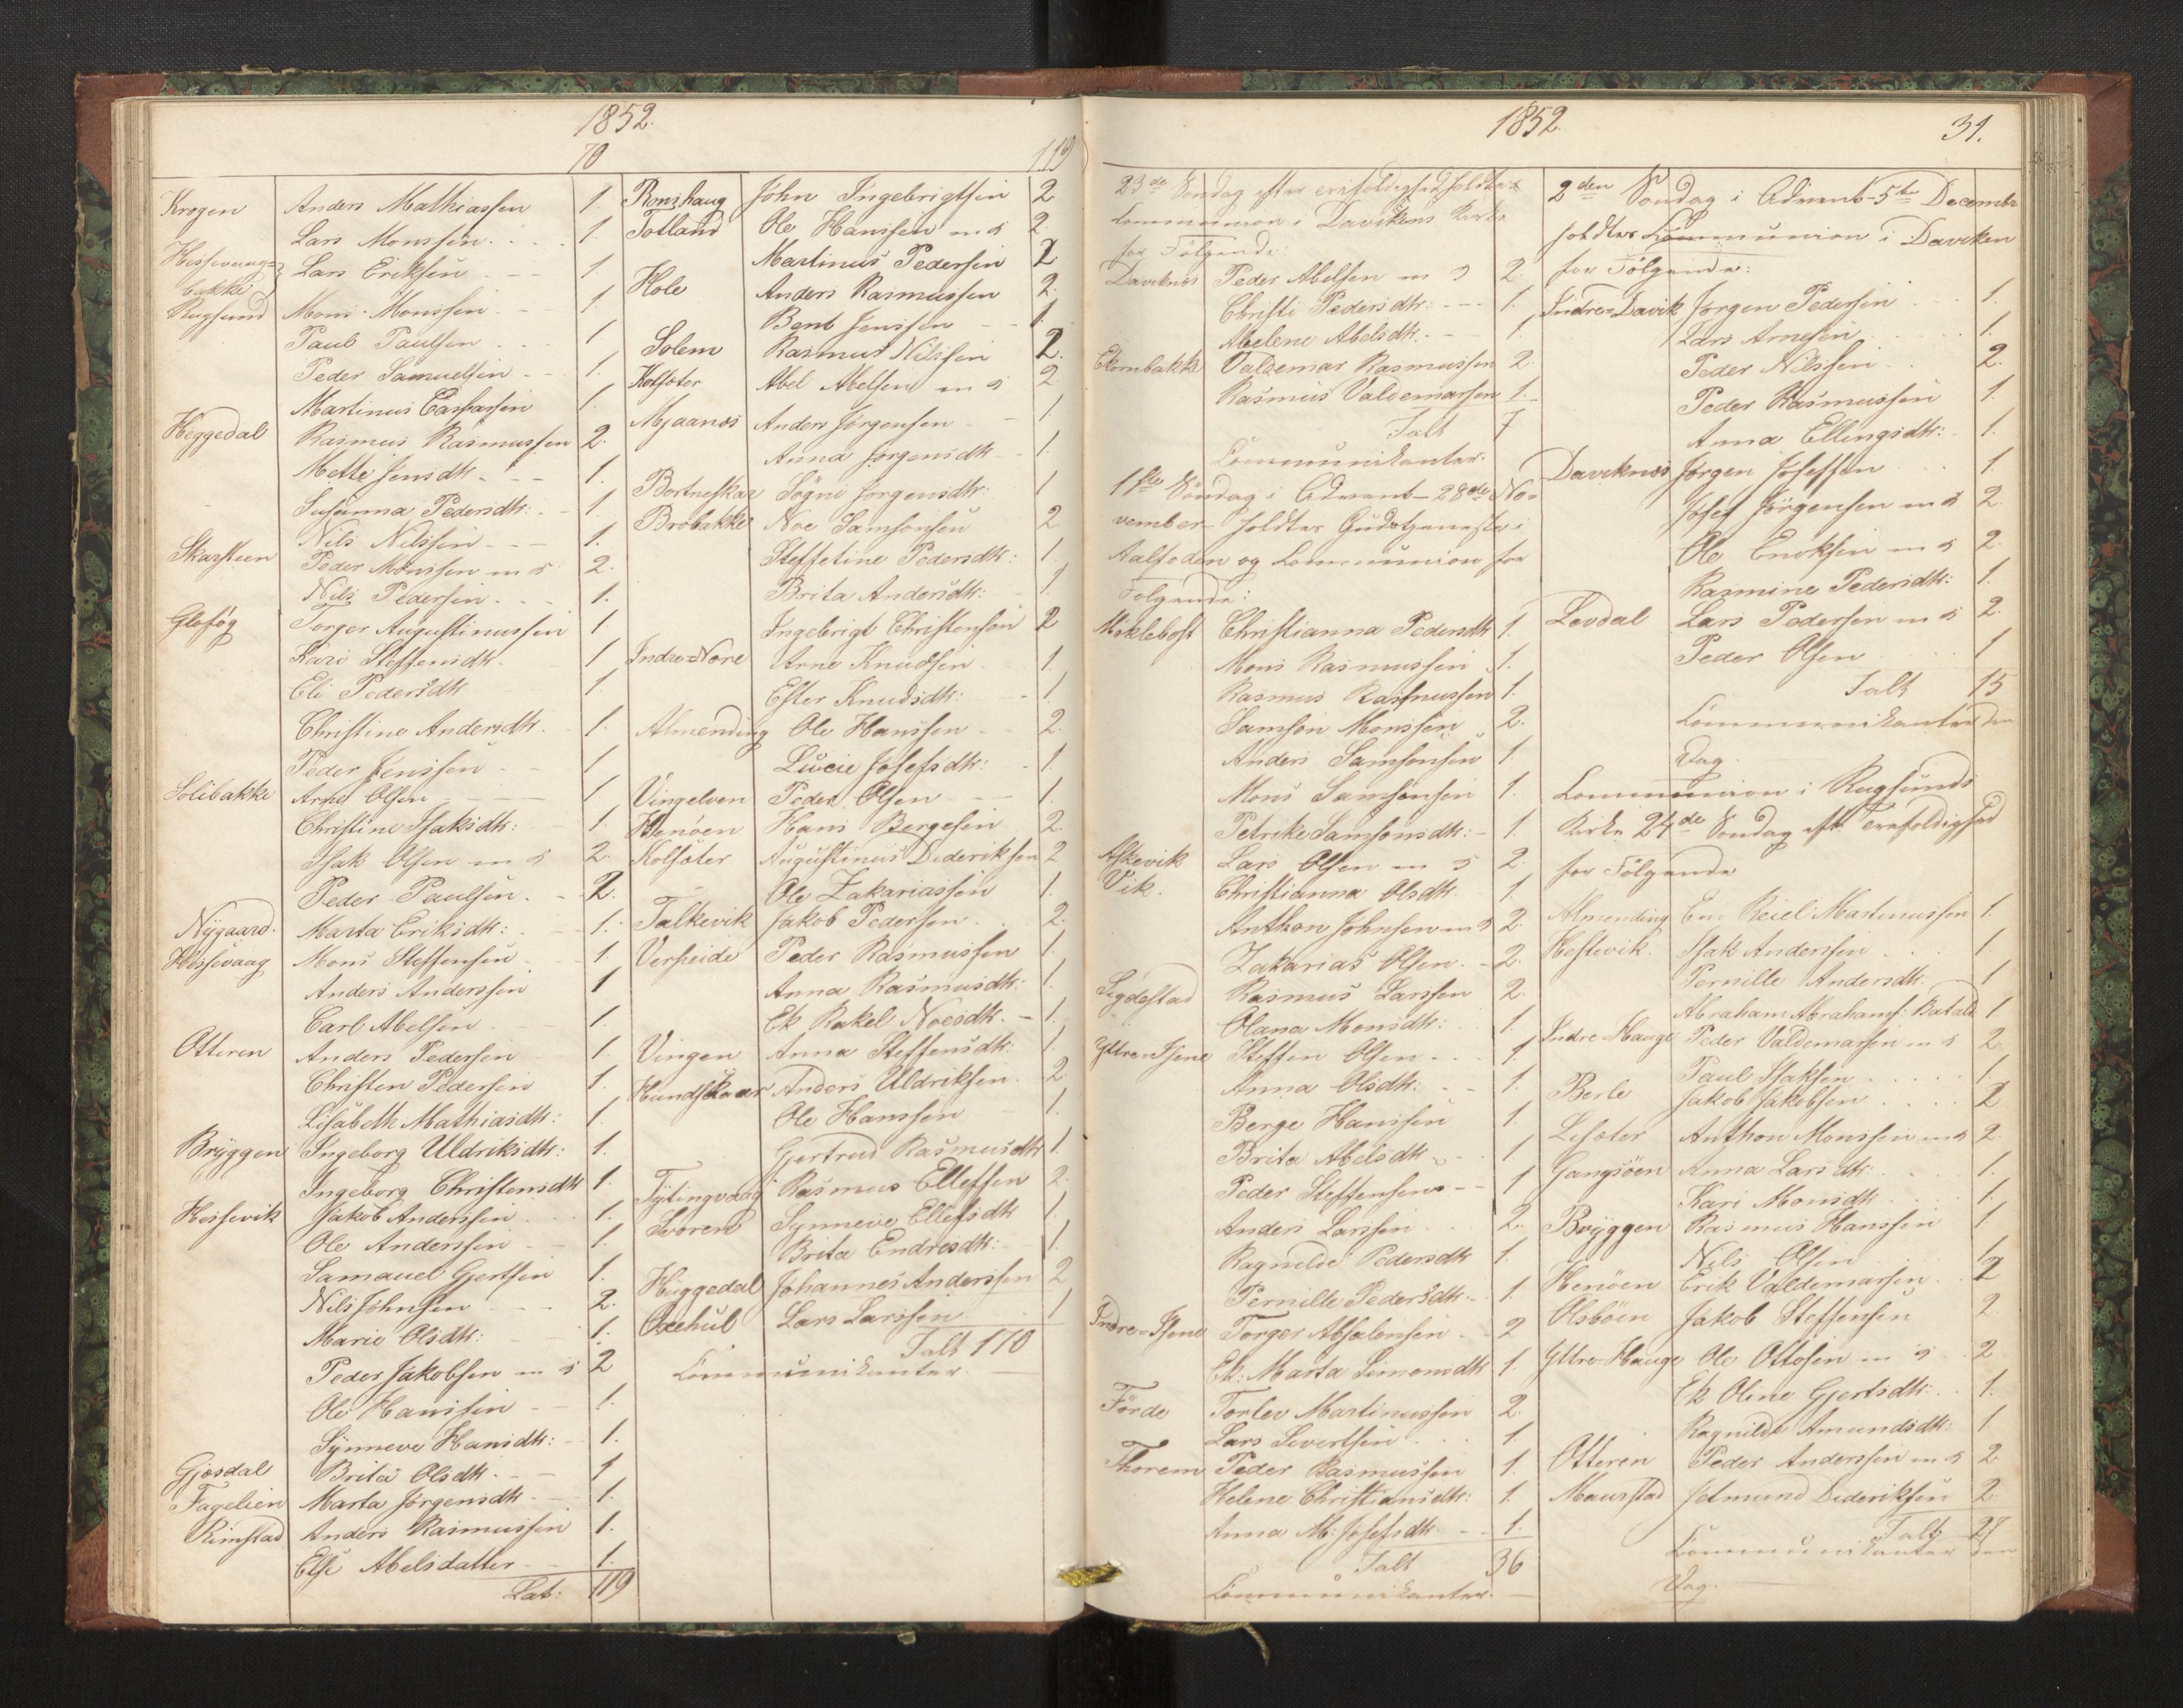 1852.
70
Krogen Anders Mathiassen 1.
Lars Monssen 1.
Hessevaag-
bakke Lars Eriksen 1.
Rugsund Mons Monssen 1
Paul Paulsen 1
Peder Samuelsen 1.
Martinus Casparsen 1.
Heggedal Rasmus Rasmussen 2.
Mette Jensdtr. 1.
Susanna Pedersdtr: 1.
Nils Nilssen 1.
Skarsteen Peder Monssen m 5 2.
Nils Pedersen 1.
Torger Augustinussen 1
Kari Steffensdtr. 1
Eli Pedersdtr 1
Christine Andersdtr. 1.
Peder Jenssen 1
Solibakke Arne Olsen 1
Christine Isaksdtr: 1.
Isak Olsen m 5 2.
Peder Paulsen 2.
Nygaard Marta Eriksdtr: 1.
Hessevaag Mons Steffensen 1.
Anders Anderssen 1
Carl Abelsen 1.
Otteren Anders Pedersen 1.
Christen Pedersen 1.
Lisabeth Mathiasdtr: 1.
Bryggen Ingeborg Uldriksdtr: 1.
Ingeborg Christensdtr 1.
Hessevik Jakob Anderssen 1.
Ole Anderssen 1.
Samuel Gjertsen 1.
Nils Johnsen 2.
Marie Olsdtr: 1.
Peder Jakobsen m 5 2
Ole Hanssen 1.
Synneve Hansdtr: 1.
Gjosdal Brita Olsdtr. 1
Fagelien Marta Jørgensdtr 1.
Rimstad Anders Rasmussen 1.
Else Abelsdatter 1.
Lat: 119
119
John Ingebrigtsen 2
Totland Ole Hanssen m 5 2.
Martinus Pedersen 2
Hole Anders Rasmussen 2.
Bent Jenssen 1
Solem Rasmus Nilssen 2.
Kolsæter Abel Abelsen m 5 2.
Mjaanes Anders Jørgensen 1.
Anna Jørgensdtr 1.
Bortneskar Søgni Jorgensdtr. 1
Brobakke Noe Samsonsen 2
Steffetine Pedersdtr: 1.
Brita Andersdtr: 1
Ingebrigt Christensen 2
Indre-Nore Arne Knudsen 1.
Ester Knudsdtr: 1
Almending Ole Hanssen 2.
Lucie Josefsdtr: 1.
Vingelven Peder Olsen 1.
Henøen Hans Bergesen 2.
Kolsæter Augustinus Dideriksen 2
Ole Zakariassen 1.
Talkevik Jakob Pedersen 2.
Verpeide Peder Rasmussen 1.
Anna Rasmusdtr: 1.
Ek Rakel Noesdtr. 1.
Vingen Anna Steffensdtr: 1.
Hundskaar Anders Uldriksen. 2.
Ole Hanssen 1.
Gjertrud Rasmusdtr 1.
Tytingvaag Rasmus Elleffsen 2.
Svoren Synneve Ellefsdtr 1.
Brita Endresdtr: 1.
Heggedal Johannes Anderssen 2
Oxehul Lars Larssen 1
Talt 170
Communikanter.
1852.
31.
23de Søndag efter Trefoldighed holdtes
Communion i Davikens Kirke
for Følgende:
Daviknes Peder Abelsen m 5 2.
Christi Pedersdtr: 1.
Abelene Abelsdtr. 1.
Ekornbakke Valdemar Rasmussen 2.
Rasmus Valdemarsen 1.
Talt 7
Communikanter.
1ste Søndag i Advent - 28de No-
vember - holdtes Gudstjeneste i
Aalfoden og Communion for
Følgende:
Myklebost Christianna Pedersdtr 1.
Mons Rasmussen 1.
Rasmus Rasmussen 1.
Samson Monssen 2.
Anders Samsonsen 1
Mons Samsonsen 1.
Petrike Samsonsdtr: 1.
Askevik Lars Olsen m 5 2.
Vik. Christianna Olsdtr. 1
Anthon Johnsen m 5 2
Zakarias Olsen. 2.
Sigdestad Rasmus Larssen 2.
Olana Monsdtr: 1.
Yttre-Isene Steffen Olsen 1
Anna Olsdtr: 1.
Berge Hanssen 1.
Brita Abelsdtr. 1
Peder Steffensen 1
Anders Larssen 2.
Ragnilde Pedersdtr 1.
Pernille Pedersdtr. 1
Indre-Isene Torger Absalonsen 2
Ek: Marta Simonsdtr 1.
Førde Torlev Martinussen 2.
Lars Sivertsen 1
Thorem Peder Rasmussen 1.
Helene Christiansdtr: 1.
Anna M: Josefsdtr. 1.
Talt 36
Communikanter.
2den Søndag i Advent - 5te December
holdtes Communion i Daviken
for Følgende:
Indre-Davik Jørgen Pedersen 1.
Lars Arnesen 1.
Peder Nilssen 2.
Peder Rasmussen 1.
Anna Ellingsdtr: 1.
Daviknes Jørgen Joseffsen 1
Josef Jörgensen m 5 2
Ole Enoksen m 5 2
Rasmine Pedersdtr: 1.
Levdal Lars Pedersen m 5 2.
Peder Olsen 1
Talt 15
Communikanter den
Dag.
Communion i Rugsunds
Kirke 24de Søndag eft. Trefoldighed
for Følgende
Almending Em. Reiel Martinussen 1.
Hestevik. Isak Anderssen 1
Pernille Andersdtr. 1
Abraham Abrahams: Batald 1
Indre-Hauge Peder Valdemarsen m 5 2.
Paul Isaksen 1.
Berle Jakob Jakobsen 2
Lesæter Anthon Monssen m 5 2.
Gangsöen Anna Larsdtr. 1.
Kari Monsdtr. 1.
Bryggen Rasmus Hanssen 1
Nils Olsen 1
Henöen Erik Valdemarsen 2
Olsböen Jakob Steffensen 2.
Yttre-Hauge Ole Ottosen m 5 2
Ek Oline Gjertsdtr: 1.
Ragnilde Amundsdtr: 1
Otteren Peder Anderssen m 5 2
Maurstad Jetmund Dideriksen 2.
Talt 27
Communikanter den
Dag.